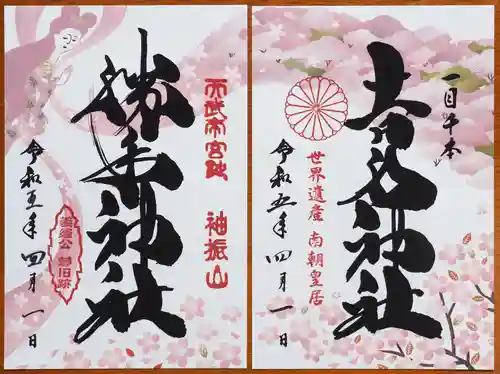 一目千本
吉水神社
世界遺産 南朝皇居
令和五年 四月一日
天武帝宮趾 袖振山
勝手神社
令和五年 四月一日
旧跡